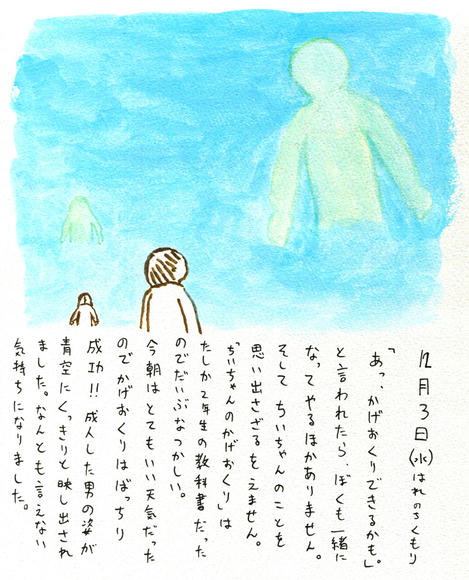 12月3日(水)はれのちくもり
「あっ、かげおくりできるかも。」
と言われたら、ぼくも一緒に
なってやるほかありません。
そしてちいちゃんのことを
思い出さざるをえません。
「ちいちゃんのかげおくり」は
たしか2年生の教科書だった
のでだいぶなつかしい。
今朝はとてもいい天気だった
のでかげおくりはばっちり
成功!!成人した男の姿が
青空にくっきりと映し出され
ました。なんとも言えない
気持ちになりました。